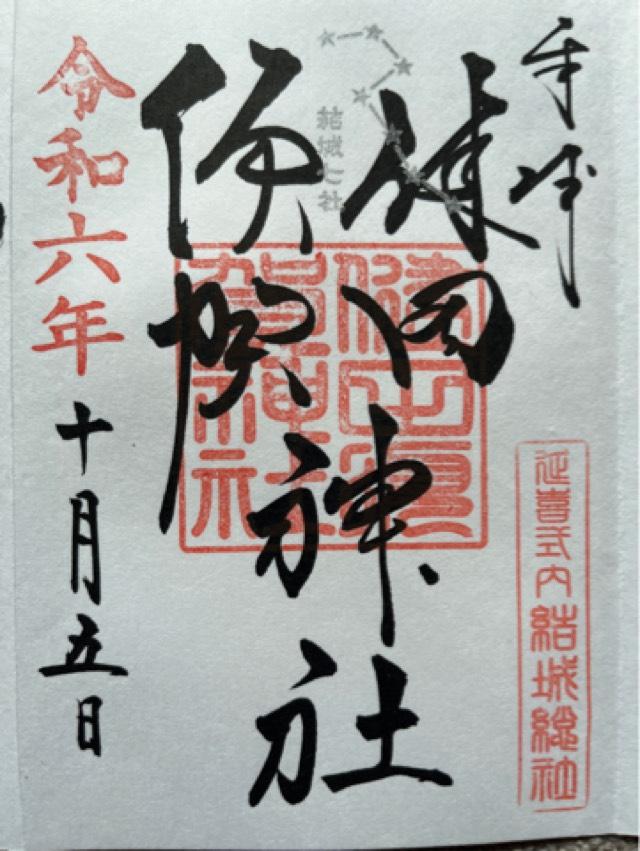 奉拝
延喜式内結城總社
健田
須賀
神社
結城七社
健田須
賀神社
令和六年十月五日